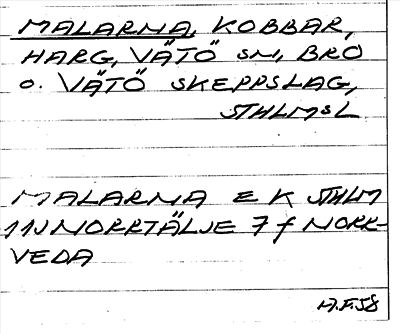 MALARNA, KOBBAR,
HARG, VÄTÖ SN, BRO
O. VÄTÖ SKEPPSLAG,
STHLMSL
MALARNA E K STHLM
11J NORRTÄLJE 7 f NORR-
VEDA